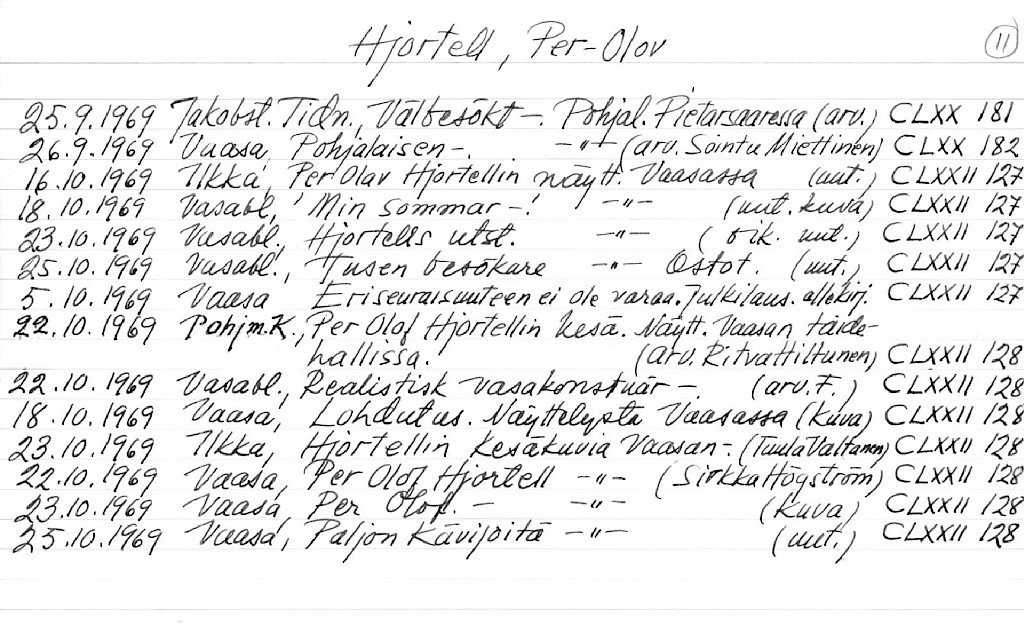 Hjortell, Per-Olov
11
25.9.1969 Jakobst. Tidn., Välbesökt -. Pohjal. Pietarsaaressa (arv.) CLXX 181
26.9.1969 Vaasa, Pohjalaisen -. -"- (arv. Sointu Miettinen) CLXX 182
16.10.1969 Ilkka, Per Olav Hjortellin näytt. Vaasassa (uut.) CLXXII 127
18.10.1969 Vasabl., 'Min sommar -! -"- (uut. kuva) CLXXII 127
23.10.1969 Vasabl., Hjortells utst. -"- (oik. uut.) CLXXII 127
25.10.1969 Vasabl., Tusen besökare -"- Ostot. (uut.) CLXXII 127
5.10.1969 Vaasa Eriseuraisuuteen ei ole varaa. Julkilaus. allekirj. CLXXII 127
22.10.1969 Pohjm.K., Per Olof Hjortellin kesä. Näytt. Vaasan taide-
hallissa. (arv. Ritva Hiltunen) CLXXII 128
22.10.1969 Vasabl., Realistisk vasakonstnär -. (arv. F.) CLXXII 128
18.10.1969 Vaasa, Lohdutus. Näyttelystä Vaasassa (kuva) CLXXII 128
23.10.1969 Ilkka, Hjortellin kesäkuvia Vaasan -. (Tuula Valtanen) CLXXII 128
22.10.1969 Vaasa, Per Olof Hjortell -"- (Sirkka Högström) CLXXII 128
23.10.1969 Vaasa, Per Olof. - -"- (kuva) CLXXII 128
25.10.1969 Vaasa, Paljon kävijöitä -"- (uut.) CLXXII 128